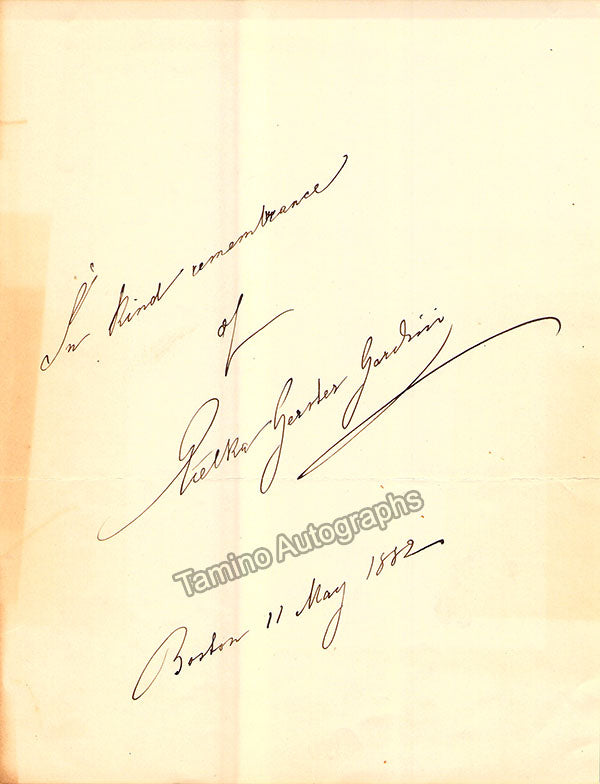 In kind remembrance
of
Etelka Gerster Gardini
Tamino Autographs
Boston 11 May 1882